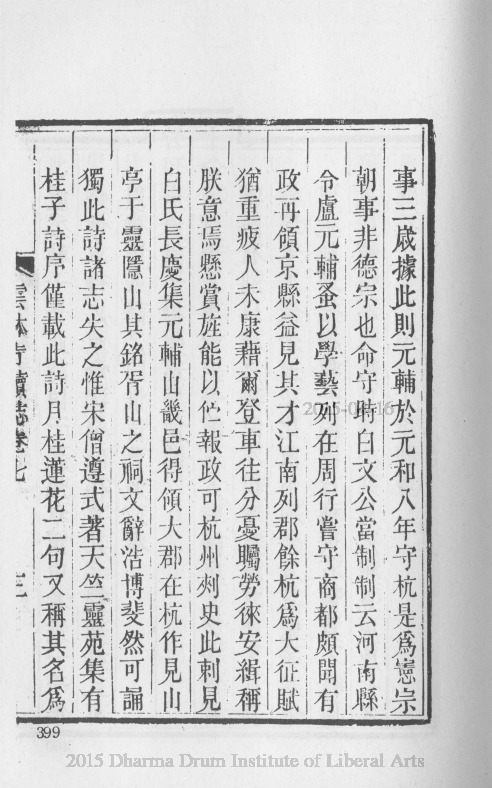 事三歲據此則元輔於元和八年守杭是爲憲宗
朝事非德宗也命守時白文公當制制云河南縣
令盧元輔蚤以學藝列在周行嘗守商都頗聞有
政再領京縣益見其才江南列郡餘杭爲大征賦
猶重疲人未康藉爾登車往分憂矚勞徠安緝稱
朕意焉懸賞旌能以伫報政可杭州刺史此刺見
白氏長慶集元輔山畿邑得領大郡在杭作見山
亭于靈隱山其銘胥山之祠文辭浩博斐然可誦
獨此詩諸志失之惟宋僧遵式著天竺靈苑集有
桂子詩序僅載此詩月桂蓮花二句又稱其名爲
雲林寺續志卷七
三
399
2015 Dharma Drum Institute of Liberal Arts